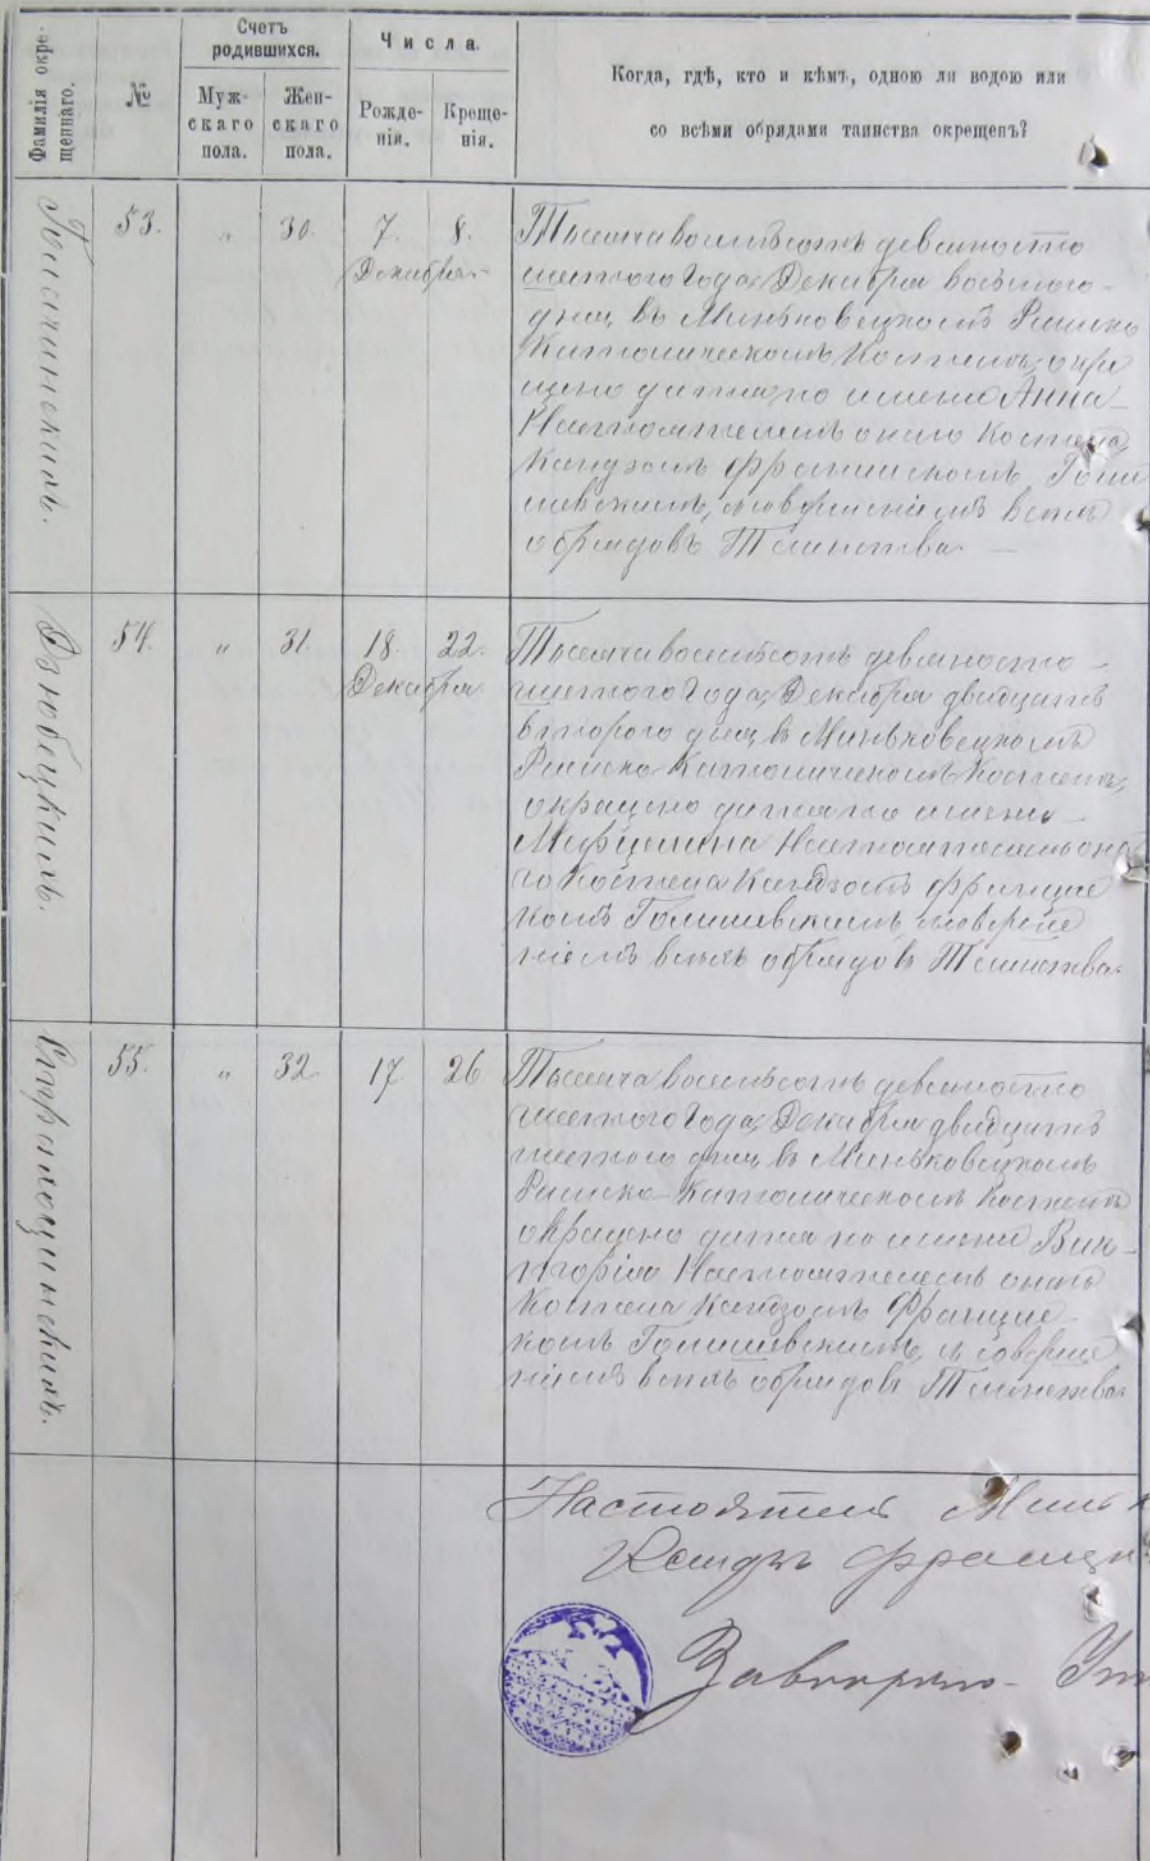 Фамилія окре-
щеннаго.
№
Счетъ
родившихся.
Муж-
скаго
пола.
Жен-
скаго
пола.
Числа.
Рожде-
нія.
Креще-
нія.
Когда, гдѣ, кто и кѣмъ, одною ли водою или
со всѣми обрядами таинства окрещенъ?
53.
"
30.
7.
8.
Декабря
Тысяча восемьсотъ девяносто
шестого года, Декабря восьмого
дня, въ Миньковецкомъ Римско
Католическомъ Костелѣ, окре
щено дитя по имени Анна
Настоятелемъ онаго Костела
Ксендзомъ Францискомъ
совершеніемъ всѣхъ
обрядовъ Таинства.
Дзюбецкихъ.
54.
"
31.
18.
22.
Декабря
Тысяча восемьсотъ девяносто
шестого года, Декабря двадцать
второго дня, въ Миньковецкомъ
Римско-Католическомъ Костелѣ,
окрещено дитя по имени
Настоятелемъ она
го Костела Ксендзомъ Францис
комъ совершe
ніемъ всѣхъ обрядовъ Таинства.
55.
"
32.
17.
26
Тысяча восемьсотъ девяносто
шестого года, Декабря двадцать
шестого дня, въ Миньковецкомъ
Римско-Католическомъ Костелѣ
окрещено дитя по имени Вик-
торія Настоятелемъ онаго
Костела Ксендзомъ Францис
комъ съ соверше
ніемъ всѣхъ обрядовъ Таинства.
Настоятель Мињк
Ксендзъ Францис